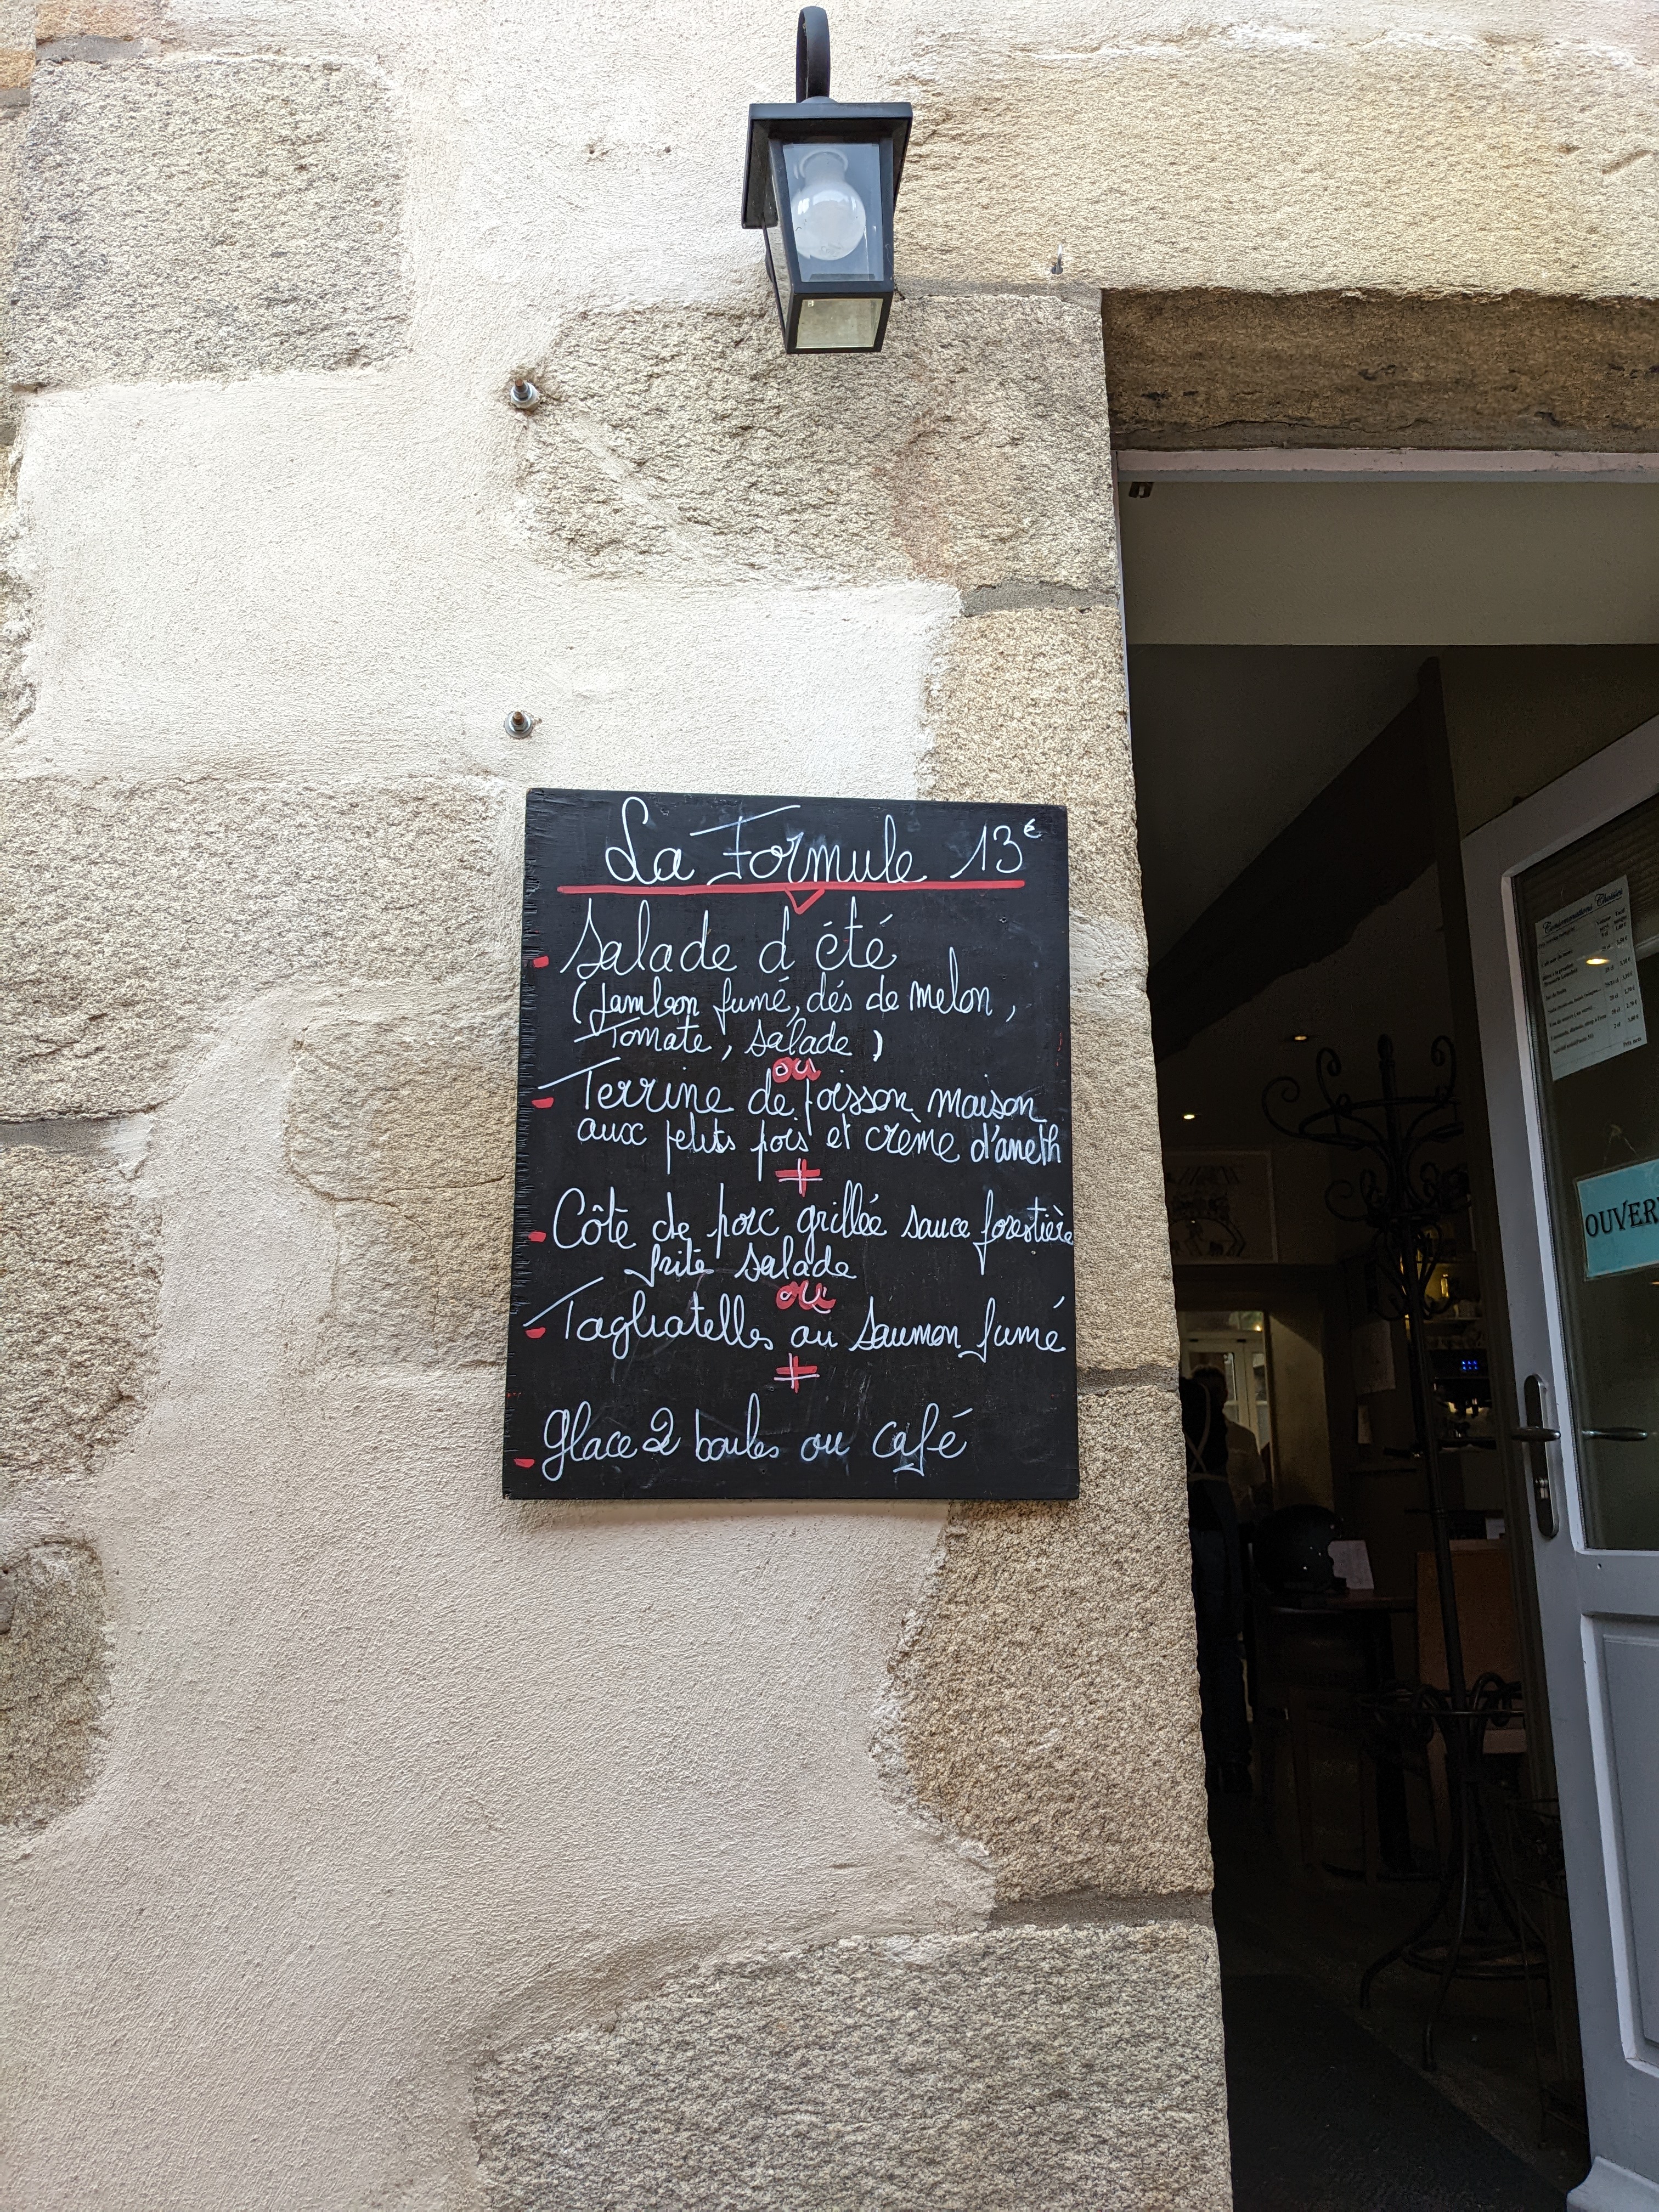 La Formule 13€
Salade d été
(Jambon fumé, dés de melon,
Tomate, salade)
ou
Terrine de poisson maison
aux petits pois et crème d'aneth
+
Côte de porc grillée sauce forestière
frite salade
ou
Tagliatelles au saumon fumé
+
glace 2 boules ou café
Consommations Chaudes
OUVER